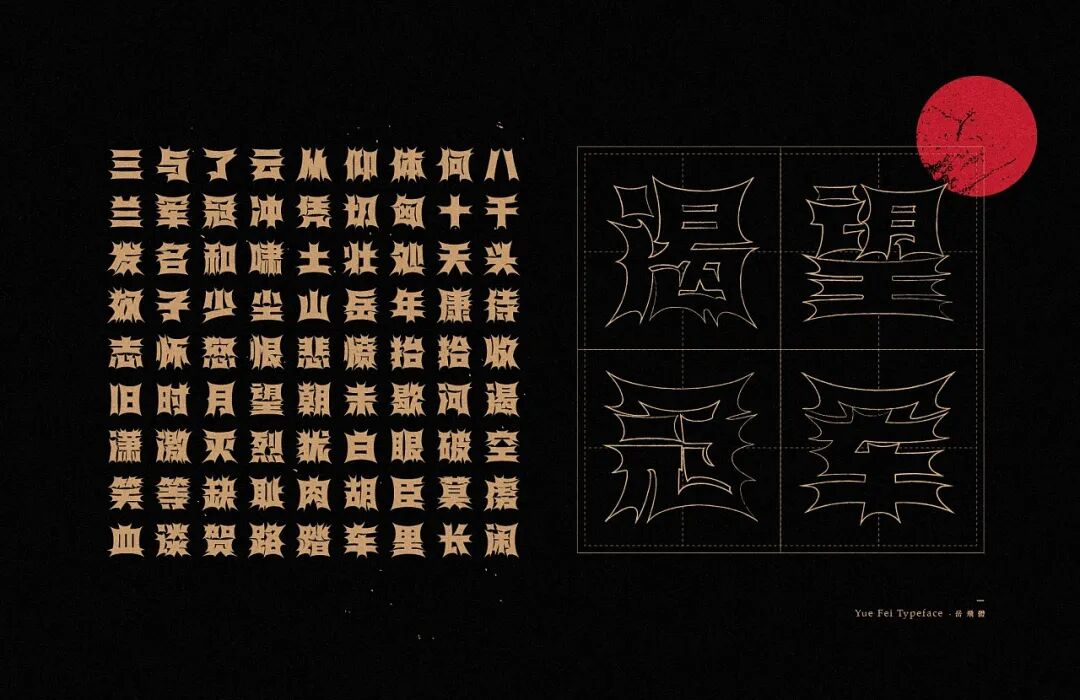 三与了云从仰体何八
兰军冠冲凭切匈十千
发名和啸土壮处天头
奴子少尘山岳年康待
志怀怒恨悲愤抬拾收
旧时月望朝未歇河渴
潇激灭烈犹白眼破空
笑等缺耻肉胡臣莫虏
血谈贺路踏车里长闲
渴望
冠军
Yue Fei Typeface · 岳飛體